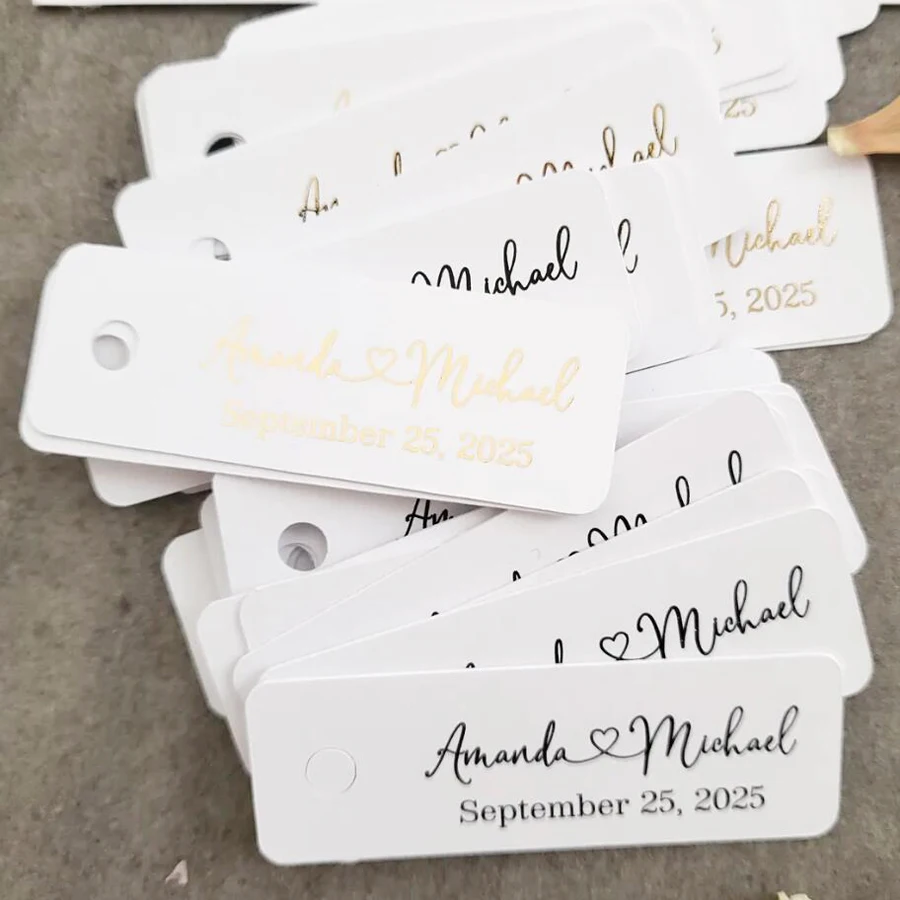 25
Michael
5, 2025
Michael
Amanda♡Michael
September 25, 2025
♡Michael
Amanda♡Michael
September 25, 2025